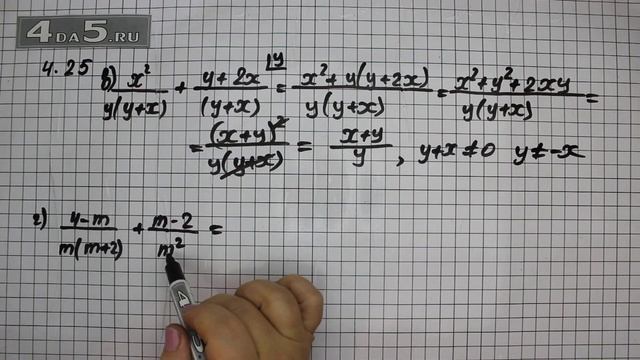 4DA5.RU
4.25 в) x²/y(y+x) + y+2x/(y+x) |y = x²+y(y+2x)/y(y+x) = x²+y²+2xy/y(y+x) =
= (x+y)²/y(y+x) = x+y/y , y+x≠0 y≠-x
г) 4-m/m(m+2) + m-2/m² =